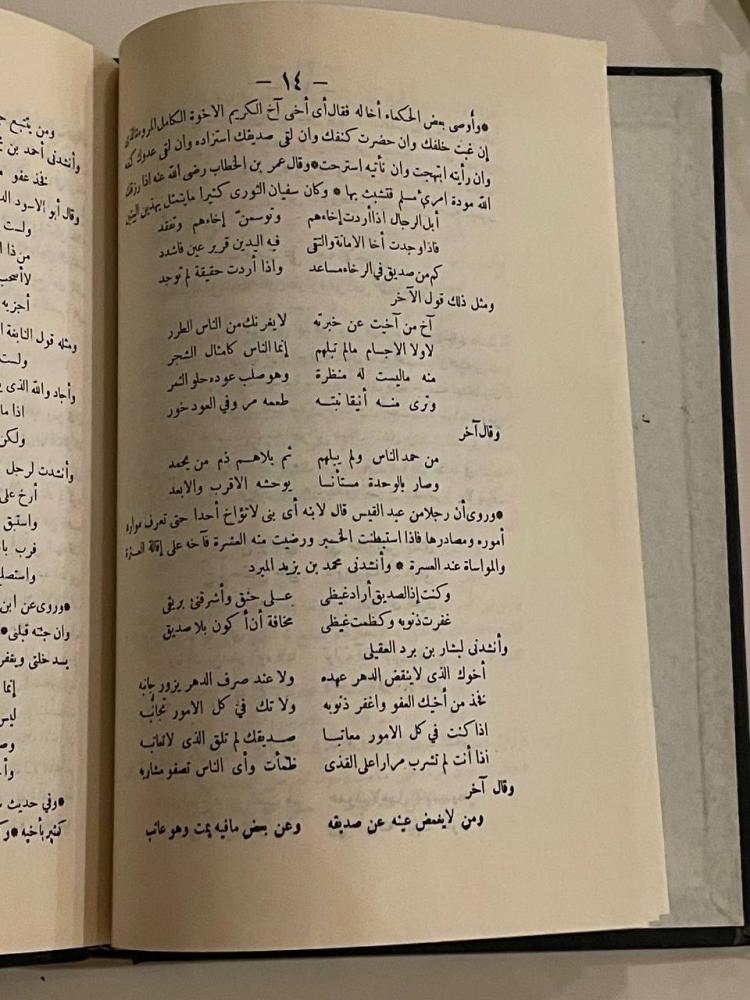 — ١٤ —
*وأوصى بعض الحكماء أخا له فقال أى أخى آخ الكريم الاخوة الكامل المروءة الذى
إن غبت خلفك وان حضرت كنفك وان لقى صديقك استزاده وان لقى عدوك كفه
وان رأيته ابتهجت وان نأتيه استرحت*وقال عمر بن الخطاب رضى الله عنه اذا رزقك
الله مودة امرئ مسلم فتشبث بها * وكان سفيان الثورى كثيرا ما يتمثل بهذين البيتين
أبل الرجال اذا أردت إخاءهم وتوسمنّ إخاءهم وتفقد
فاذا وجدت أخا الامانة والتقى فيه اليدين قرير عين فاشدد
كم من صديق فى الرخاء مساعد واذا أردت حقيقة لم توجد
ومثل ذلك قول الآخر
آخ من آخيت عن خبرته لا يغرنك من الناس الطرر
لا ولا الاجسام مالم تبلهم إنما الناس كامثال الشجر
منه ماليست له منظرة وهو صلب عوده حلو الثمر
وترى منه أنيقا نبته طعمه مر وفى العود خور
وقال آخر
من حمد الناس ولم يبلهم ثم بلاهم ذم من يحمد
وصار بالوحدة مستأنسا يوحشه الاقرب والابعد
*وروى أن رجلا من عبد القيس قال لابنه أى بنى لا تؤاخ أحدا حتى تعرف موارد
أموره ومصادرها فاذا استبطنت الخبر ورضيت منه العشرة فآخه على إقالة العثرة
والمواساة عند العسرة * وأنشدنى محمد بن يزيد المبرد
وكنت إذا الصديق أراد غيظى على حنق وأشرقنى بريقى
غفرت ذنوبه وكظمت غيظى مخافة أن أكون بلا صديق
وأنشدنى لبشار بن برد العقيلى
أخوك الذى لا ينقض الدهر عهده ولا عند صرف الدهر يزور جانبه
فخذ من أخيك العفو واغفر ذنوبه ولا تك فى كل الامور تجانبه
اذا كنت فى كل الامور معاتبا صديقك لم تلق الذى لا تعاتبه
اذا أنت لم تشرب مرارا على القذى ظمأت وأى الناس تصفو مشاربه
وقال آخر
ومن لا يغمض عينه عن صديقه وعن بعض مافيه يمت وهو عاتب